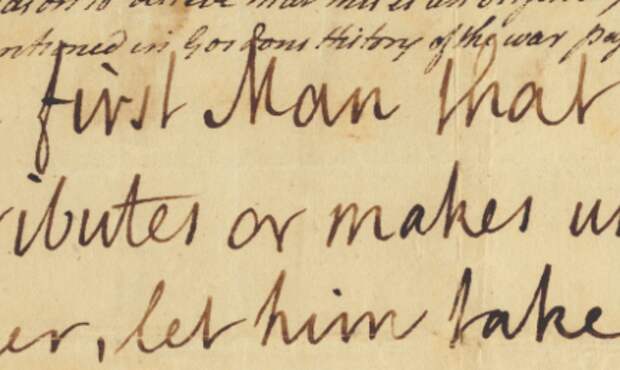 to believe that this is an
in Gordons History of the war
first Man that
ributes or makes us
er, let him take